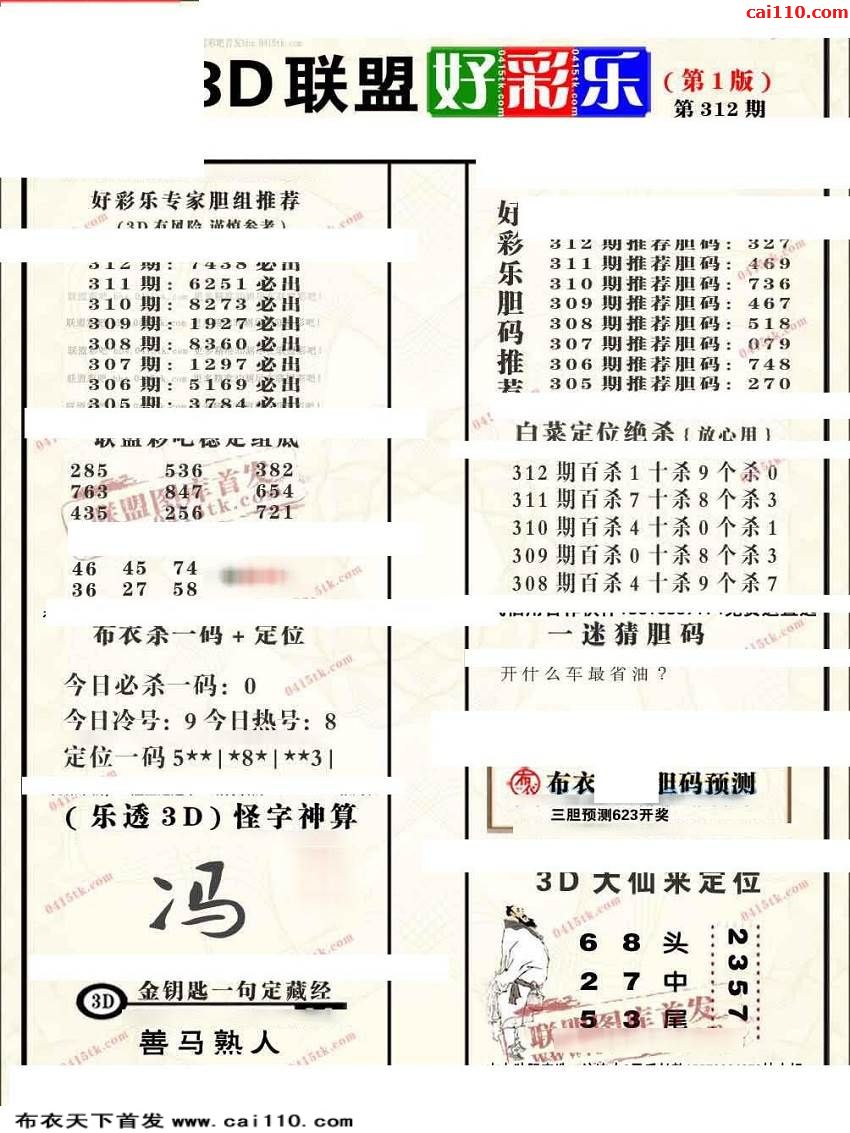 cai110.com
3D联盟 好彩乐 (第1版)
第 312 期
好彩乐专家胆组推荐
(3D有风险 谨慎参考)
312 期: 7438 必出
311 期: 6251 必出
310 期: 8273 必出
309 期: 1927 必出
308 期: 8360 必出
307 期: 1297 必出
306 期: 5169 必出
305 期: 3784 必出
联盟彩吧稳定组底
285 536 382
763 847 654
435 256 721
46 45 74
36 27 58
布衣杀一码 + 定位
今日必杀一码: 0
今日冷号: 9 今日热号: 8
定位一码 5**|*8*|**3|
(乐透3D) 怪字神算
冯
3D 金钥匙一句定藏经
善马熟人
好彩乐胆码推荐
312 期推荐胆码: 327
311 期推荐胆码: 469
310 期推荐胆码: 736
309 期推荐胆码: 467
308 期推荐胆码: 518
307 期推荐胆码: 079
306 期推荐胆码: 748
305 期推荐胆码: 270
白菜定位绝杀 { 放心用 }
312 期百杀 1 十杀 9 个杀 0
311 期百杀 7 十杀 8 个杀 3
310 期百杀 4 十杀 0 个杀 1
309 期百杀 0 十杀 8 个杀 3
308 期百杀 4 十杀 9 个杀 7
一迷猜胆码
开什么车最省油?
布衣 胆码预测
三胆预测623开奖
3D 大仙来定位
6 8 头
2 7 中
5 3 尾
2357
联盟图库首发
0415tk.com
布衣天下首发 www.cai110.com